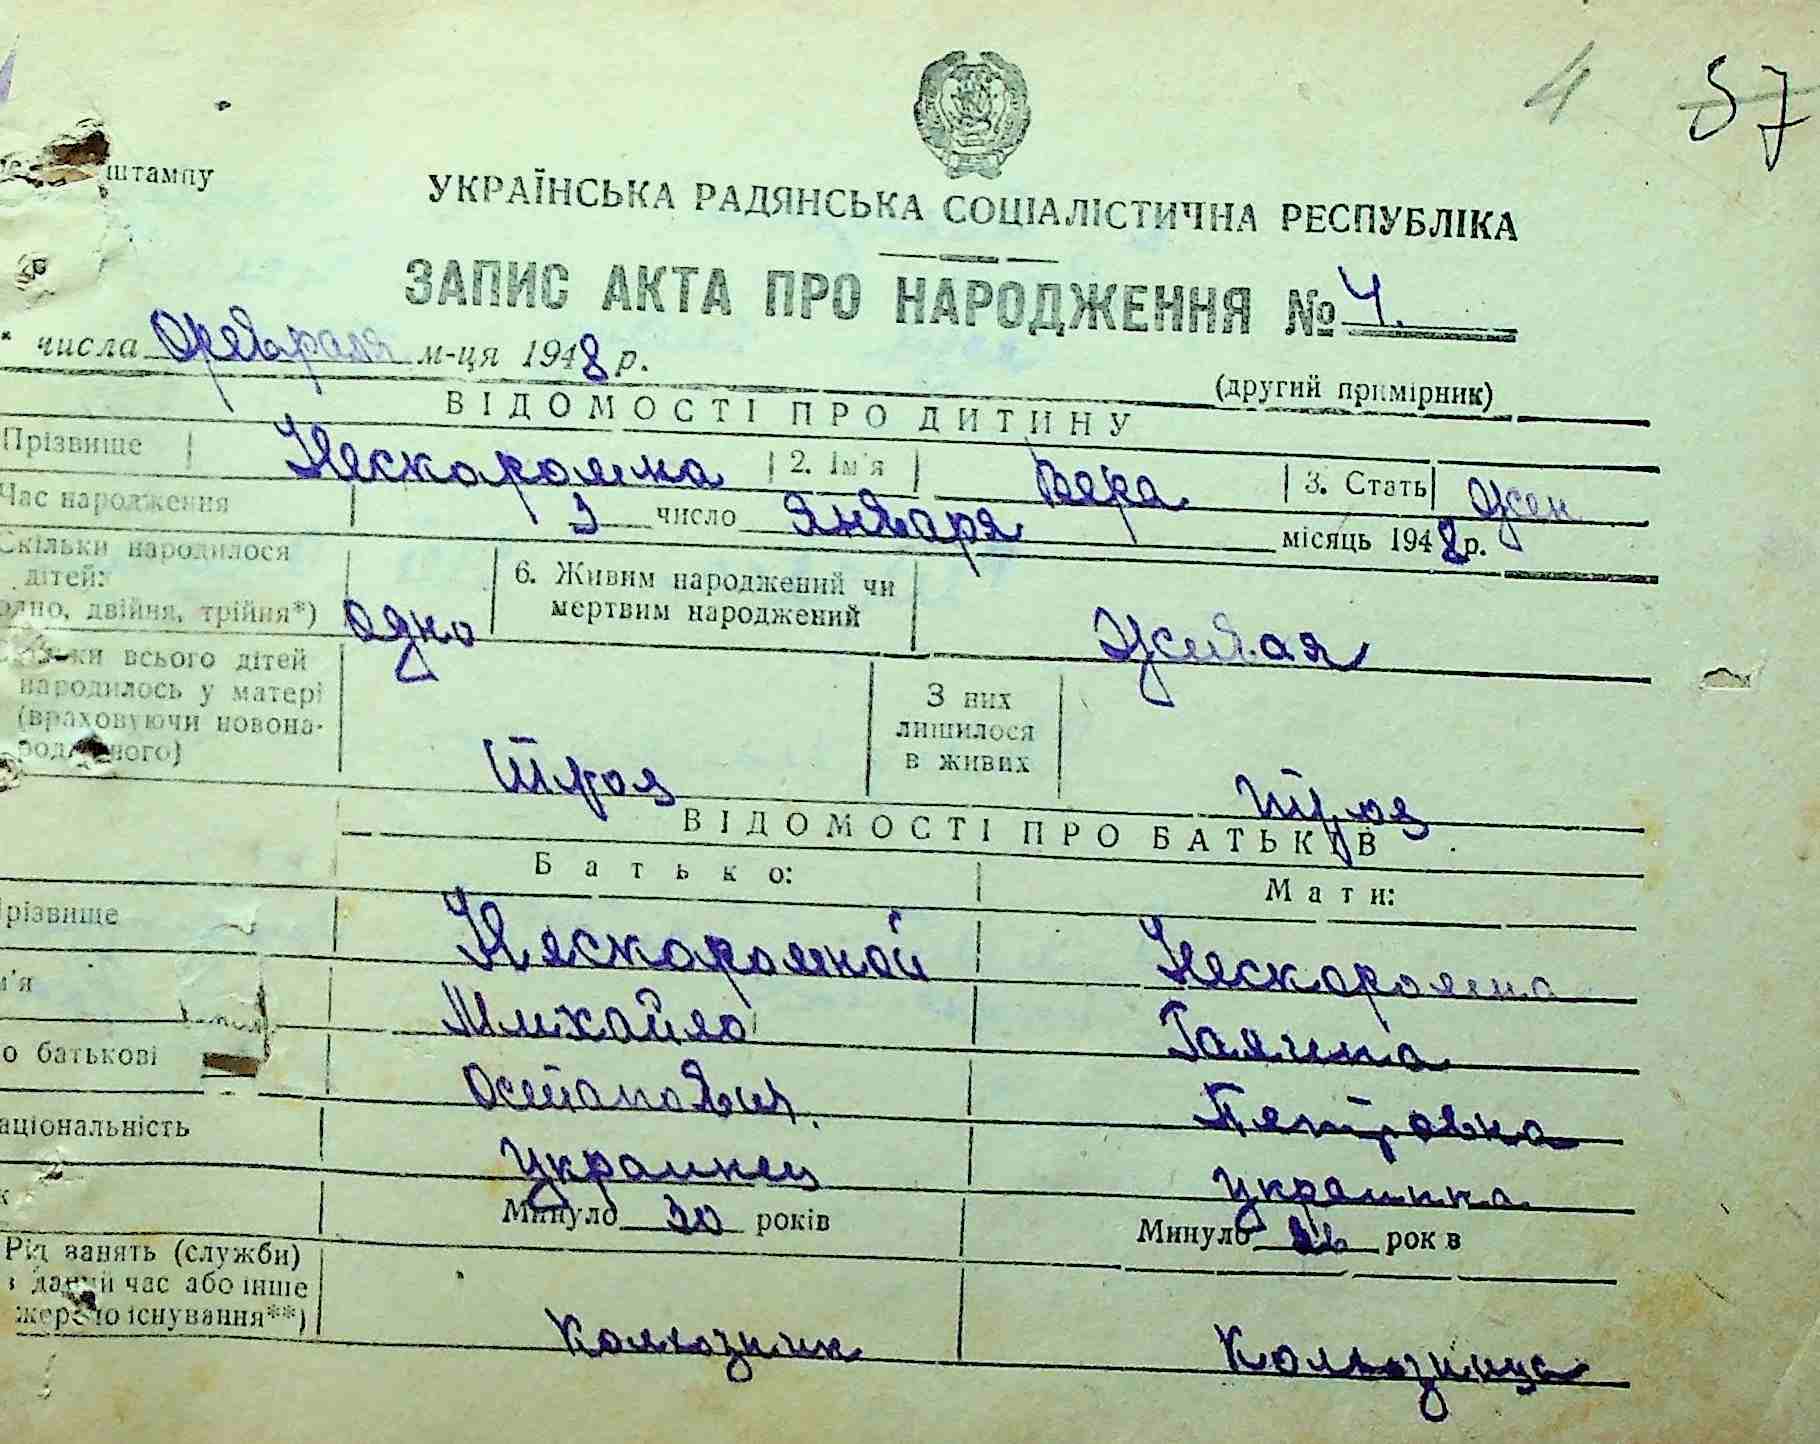 4 57
штампу
УКРАЇНСЬКА РАДЯНСЬКА СОЦІАЛІСТИЧНА РЕСПУБЛІКА
ЗАПИС АКТА ПРО НАРОДЖЕННЯ № 4.
" числа февраля м-ця 1948 р.
(другий примірник)
ВІДОМОСТІ ПРО ДИТИНУ
Прізвище Нескоромна 2. Ім'я Вера 3. Стать жен
Час народження 3 число января місяць 1948 р.
Скільки народилося дітей:
одно, двійня, трійня*) одно
6. Живим народжений чи
мертвим народжений живая
всього дітей
народилось у матері
(враховуючи новона-
родженого) трое
З них
лишилося
в живих трое
ВІДОМОСТІ ПРО БАТЬКІВ
Батько: Мати:
різвище Нескоромной Нескоромна
м'я Михайло Галина
о батькові Остапович. Петровна
аціональність украинец украинка
к Минуло 30 років Минуло рок в
Рід занять (служби)
в даний час або інше
жерело існування**) колхозник колхозница